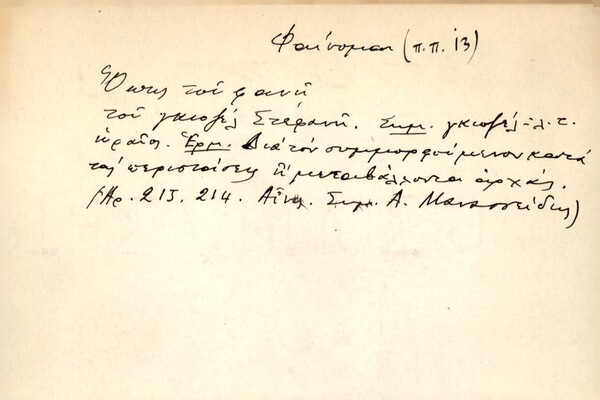 Φαίνομαι (π.π. 13)
Ὅπως τοῦ φανῇ
τοῦ γκιοζέλ Στεφανῆ. Σημ. γκιοζέλ-λ.τ.
ὡραῖος. Ἑρμ. Διὰ τὸν συμμορφούμενον κατὰ
τὰς περιστάσεις ἢ μεταβάλλοντα ἀρχάς.
(Ἀρ. 213. 214. Αἶν. Σημ. Α. Μανασσείδης)